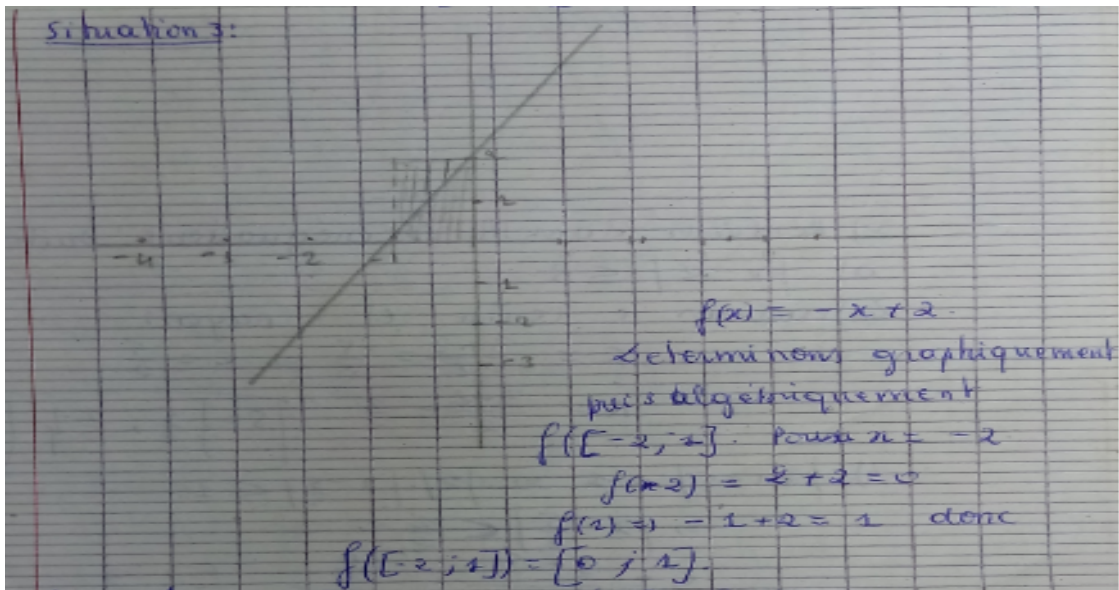 Situation 3:
2
1
-4 -3 -2 -1
-1
-2
-3
f(x) = - x + 2.
Determinons graphiquement
puis algébriquement
f([-2; 1]. Pour x = -2
f(-2) = 2 + 2 = 0
f(1) = - 1 + 2 = 1 donc
f([-2; 1]) = [0; 1].